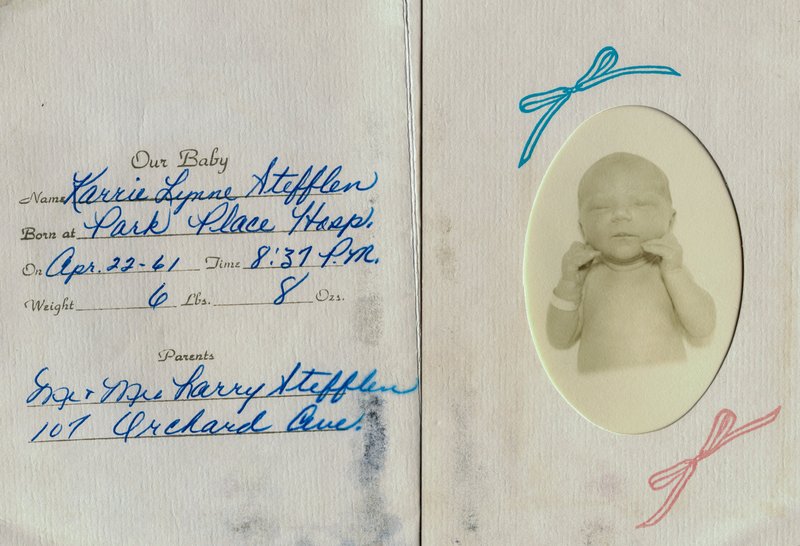 Our Baby
Name Karrie Lynne Stefflen
Born at Park Place Hosp.
On Apr. 22-61 Time 8:37 P.M.
Weight 6 Lbs. 8 Ozs.
Parents
Mr + Mrs Larry Stefflen
107 Orchard Ave.